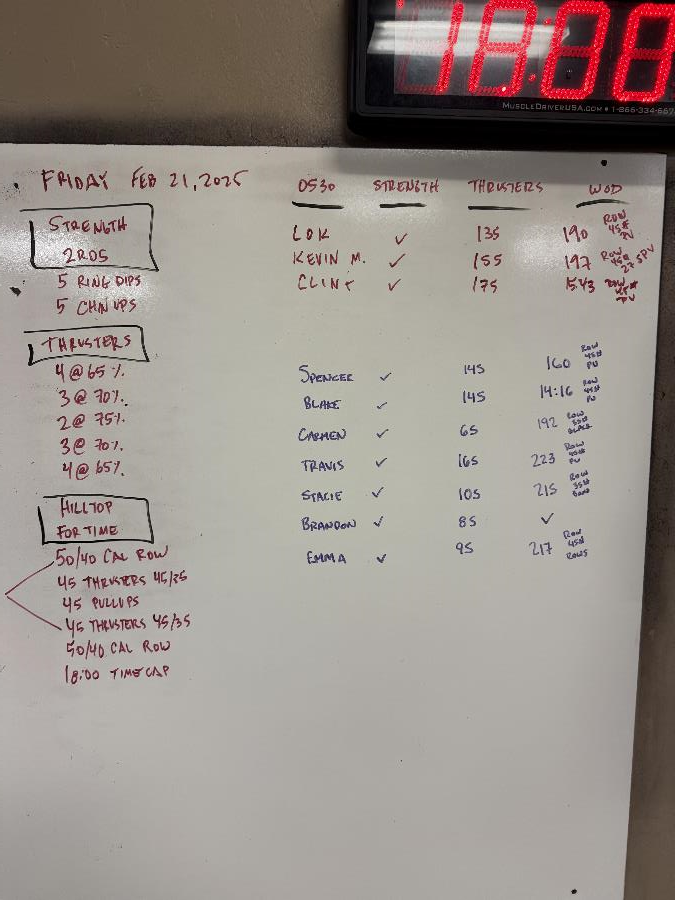 18:00
MUSCLEDRIVERUSA.COM • 1-866-334-667
FRIDAY FEB 21, 2025
0530 STRENGTH THRUSTERS WOD
STRENGTH
2 RDS
5 RING DIPS
5 CHINUPS
THRUSTERS
4 @ 65%
3 @ 70%
2 @ 75%
3 @ 70%
4 @ 65%
HILLTOP
FOR TIME
50/40 CAL ROW
45 THRUSTERS 45/35
45 PULLUPS
45 THRUSTERS 45/35
50/40 CAL ROW
18:00 TIME CAP
LOK ✓ 135 190 ROW 45#
KEVIN M. ✓ 155 197 ROW 45#
CLINT ✓ 175 ROW 45# PU
SPENCER ✓ 145 160 ROW 45# PU
BLAKE ✓ 145 14:16 ROW 45# PU
CARMEN ✓ 65 192 ROW 35# BLACK
TRAVIS ✓ 165 223 ROW 45# PU
STACIE ✓ 105 215 ROW 35# BAND
BRANDON ✓ 85 ✓
EMMA ✓ 95 217 ROW 45# ROWS